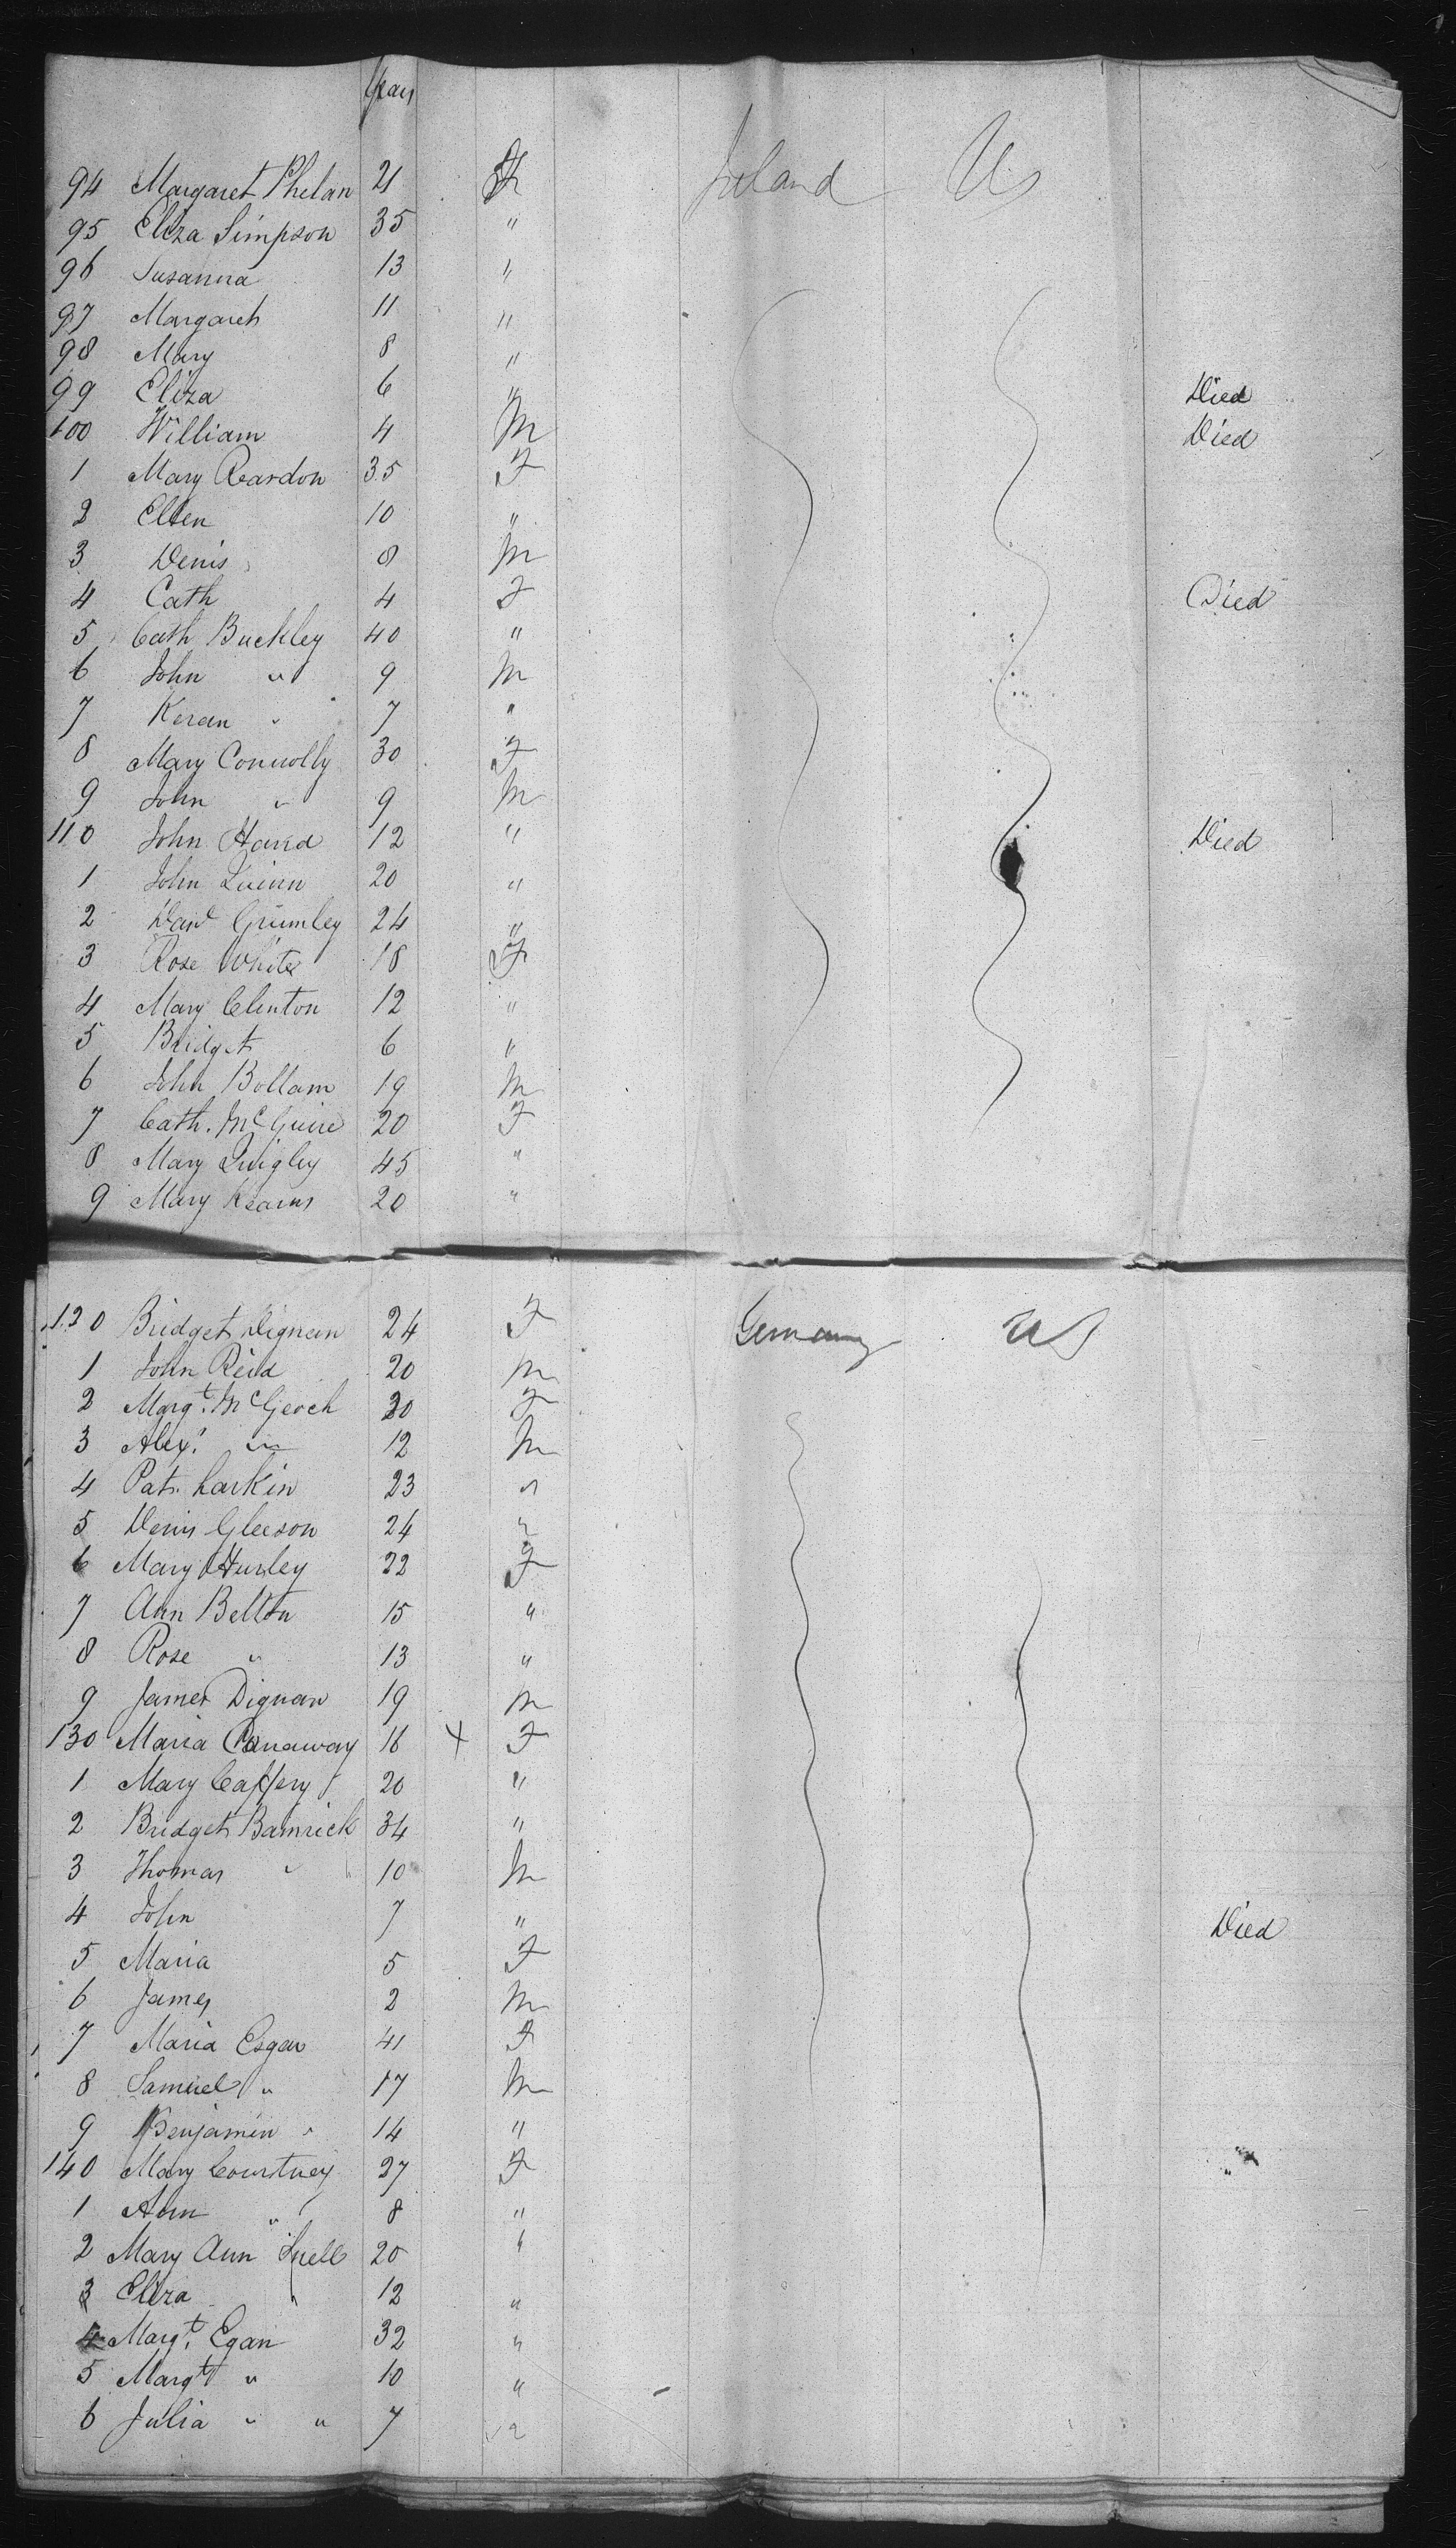 Years
94 Margaret Phelan 21 F Ireland US
95 Eliza Simpson 35 "
96 Susanna 13 "
97 Margaret 11 "
98 Mary 8 "
99 Eliza 6 " Died
100 William 4 M Died
1 Mary Reardon 35 F
2 Ellen 10 "
3 Denis 8 M
4 Cath 4 F Died
5 Cath Buckley 40 "
6 John " 9 M
7 Keran " 7 "
8 Mary Connolly 30 F
9 John " 9 M
110 John Hand 12 " Died
1 John Quinn 20 "
2 Davd Grumley 24 "
3 Rose White 18 F
4 Mary Clinton 12 "
5 Bridget 6 "
6 John Bollam 19 M
7 Cath. McGuire 20 F
8 Mary Quigley 45 "
9 Mary Kearns 20 "
120 Bridget Dignan 24 F Germany US
1 John Reid 20 M
2 Margt. McGeoch 30 F
3 Alexr " 12 M
4 Pat. Larkin 23 "
5 Denis Gleeson 24 "
6 Mary Hurley 22 F
7 Ann Belton 15 "
8 Rose " 13 "
9 James Dignan 19 M
130 Maria Canaway 16 X F
1 Mary Caffery 20 "
2 Bridget Bamrick 34 "
3 Thomas " 10 M
4 John 7 " Died
5 Maria 5 F
6 James 2 M
7 Maria Esgar 41 F
8 Samuel " 17 M
9 Benjamin " 14 "
140 Mary Courtney 27 F
1 Ann " 8 "
2 Mary Ann Snell 20 "
3 Eliza 12 "
4 Margt. Egan 32 "
5 Margt " 10 "
6 Julia " " 7 "